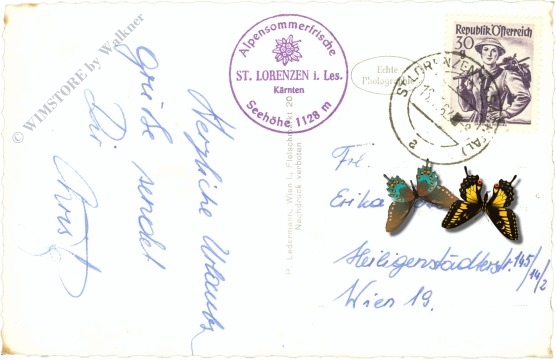 © WIMSTORE by Walkner
Herzliche Urlaubs
grüße sendet
Dir
Alpensommerfrische
ST. LORENZEN i. Les.
Kärnten
Seehöhe 1128 m
Echte
Photographie
P. Ledermann, Wien I., Fleischmarkt 20
Nachdruck verboten
Republik Österreich
30
Frl.
Erika
Heiligenstädterstr. 145/14/2
Wien 19.